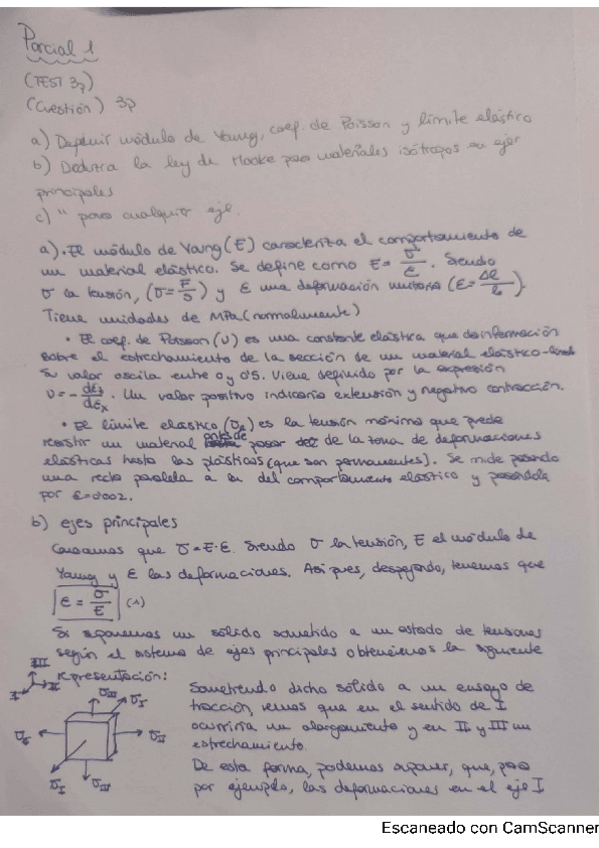 Parcial 1
(TEST 3p)
(Cuestión) 3p
a) Definir módulo de Young, coef. de Poisson y límite elástico
b) Deduzca la ley de Hooke para materiales isótropos en ejes
principales
c) " para cualquier eje.
a). El módulo de Young (E) caracteriza el comportamiento de
un material elástico. Se define como E = σ/ε. Siendo
σ la tensión, (σ = F/S) y ε una deformación unitaria (ε = Δl/l).
Tiene unidades de MPa (normalmente)
• El coef. de Poisson (υ) es una constante elástica que da información
sobre el estrechamiento de la sección de un material elástico-lineal
Su valor oscila entre 0 y 0'5. Viene definido por la expresión
υ = - dεy/dεx. Un valor positivo indicaría extensión y negativo contracción.
• El límite elástico (σe) es la tensión máxima que puede
resistir un material antes de pasar de la zona de deformaciones
elásticas hasta las plásticas (que son permanentes). Se mide pasando
una recta paralela a la del comportamiento elástico y pasándola
por ε=0'002.
b) ejes principales
Conocemos que σ = E·ε. Siendo σ la tensión, E el módulo de
Young y ε las deformaciones. Así pues, despejando, tenemos que
ε = σ/E (1)
Si suponemos un sólido sometido a un estado de tensiones
según el sistema de ejes principales obtenemos la siguiente
representación:
III
I
II
σIII
σI
σII
σII
σI
σIII
Sometiendo dicho sólido a un ensayo de
tracción, vemos que en el sentido de I
ocurriría un alargamiento y en II y III un
estrechamiento.
De esta forma, podemos suponer, que, para
por ejemplo, las deformaciones en el eje I
Escaneado con CamScanner